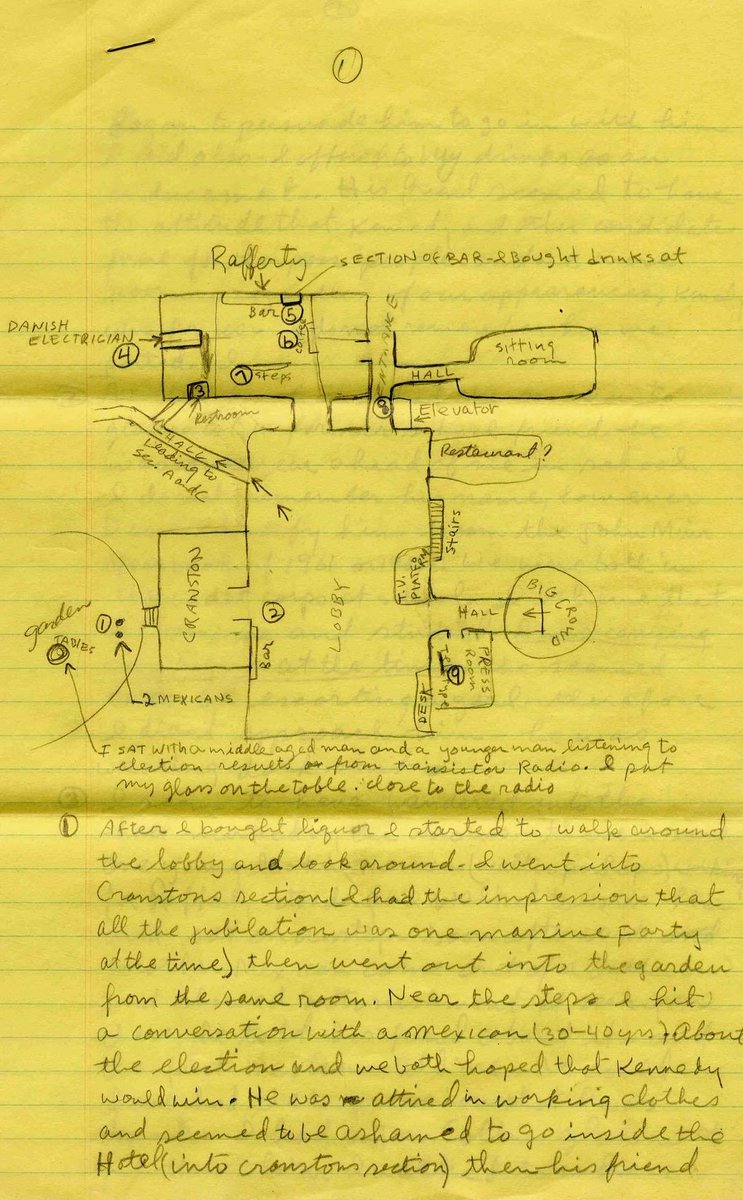 1
Rafferty
SECTION OF BAR - I Bought drinks at
Bar
5
DANISH
ELECTRICIAN
4
6
coffee
7
Steps
3
Restroom
ENTRANCE
8
HALL
Sitting
room
Elevator
HALL
Leading to
sec. A and C
Restaurant?
Stairs
T.V.
PLATFORM
CRANSTON
LOBBY
2
Bar
garden
TABLES
1
2 MEXICANS
HALL
BIG
CROWD
PRESS
Room
9
DESK
I SAT WITH a middle aged man and a younger man listening to
election results from transistor Radio. I put
my glass on the table. close to the radio
1 After I bought liquor I started to walk around
the lobby and look around - I went into
Cranstons section (I had the impression that
all the jubilation was one massive party
at the time) then went out into the garden
from the same room. Near the steps I hit
a conversation with a mexican (30-40 yrs). About
the election and we both hoped that Kennedy
would win. He was attired in working clothes
and seemed to be ashamed to go inside the
Hotel (into cranstons section) then his friend